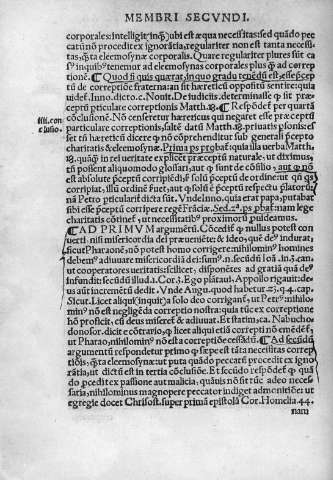 MEMBRI SECVNDI.
corporales: intelligit̃ inq̃ vbi est æqua necessitas: sed quādo pec
catũ nō procedit ex ignorātia, regulariter non est tanta necessi
tas, q̃ta eleemosynæ corporalis. Quare regulariter plures sũt ca
s⁹ in quib⁹ tenemur ad eleemosynas corporales plus q̃ ad correp
tionē. ¶ Quod si quis quærat, in quo gradu tenēdũ est, esse p̃cep
tũ de correptione fraterna: an sit hæretici oppositũ sentire: quia
uidef. Inno. dicto. c. Nouit. De iudiciis. determinasse q̃ sit præ
ceptũ particulare correptionis Matth. 18. ¶ Respōdef per quartā
iiii. con
clusio.
cōclusionē. Nō censeretur hæreticus qui negaret esse præceptũ
particulare correptionis, sufe datũ Matth. 18. priuatis psonis: es
set tñ hæretici dicere q̃ nō cōprehenditur sub generali præceptō
charitatis & eleemosynæ. Prima ps probaf: quia illa uerba Matth.
18. quāq̃ in rei ueritate explicēt præceptũ naturale, ut diximus,
tñ possent aliquomodo glossari, aut q̃ sunt de cōsilio, aut q̃ nō
est absolute p̃ceptũ corripiēdi, s; solũ p̃ceptũ de ordine: ut qñ q̃s
corripiat, illũ ordinē suet, aut q̃ solũ ē p̃ceptũ respectu platorũ:
nā Petro pticulariꝰ dictā sũt. Vnde Inno. quia erat papa, putabat
sibi esse p̃ceptũ corripere regē Frāciæ. Sed 2ª. ps pbaf: nam lege
charitatis cōtinef, ut proximorũ puideamus.
¶ AD PRIMVM argumētũ. Cōcedif q̃ nullus potest con
uerti, nisi misericordia dei præueniēte: & ideo, que dē indurat,
sicut Pharaonē, nō potest homo corrigere, nihilomin⁹ homines
debem⁹ adiuuare misericordia dei: sum⁹. n. secūdũ Ioā. in. 3. can.
ut cooperatores ueritatis: scilicet, disponētes ad gratiā quā de⁹
infundit: secūdũ illud. 1. Cor. 3. Ego plātaui, Appollo rigauit: de⁹
us aũt incremētũ dedit. Vnde Augu. quod habetur. 23. q. 4. cap.
Sicut. Licet aliqui (inquit) a solo deo corrigant, ut Petr⁹: nihilo-
min⁹ nō est negligēda correptio nostra: quia tũc ex correptione
hō proficit, cũ deus miseref & adiuuat. Et statim, ca. Nabucho-
donosor. dicit e cōtrario, q̃ licet aliqui etiā correpti nō emēdēf,
ut Pharao, nihilomin⁹ nō est a correptiōe cessādũ. ¶ Ad secūdũ
argumentũ respondetur primo q̃ sæpe est tāta necessitas correp
tiōis, q̃ta eleemosynæ: ut puta quādo peccatũ procedit ex igno
rātia, ut dictũ est in tertia cōclusiōe. Et secūdo respōdef q̃ quā
do p̃cedit ex passione aut malicia, quāuis nō sit tũc adeo necessa-
ria, nihilominus magnopere peccator indiget admonitiōe: ut
egregie docet Chrisost. super primā epistolā Cor. Homelia. 44.
nam